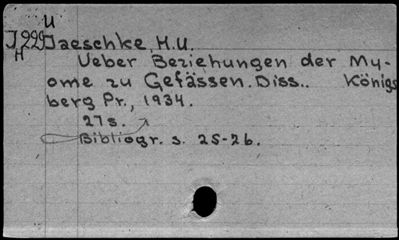 U
J 229 Jaeschke, H.U.
H
Ueber Beziehungen der My-
ome zu Gefässen. Diss.. Königs
berg Pr., 1934.
27s.
Bibliogr. s. 25-26.